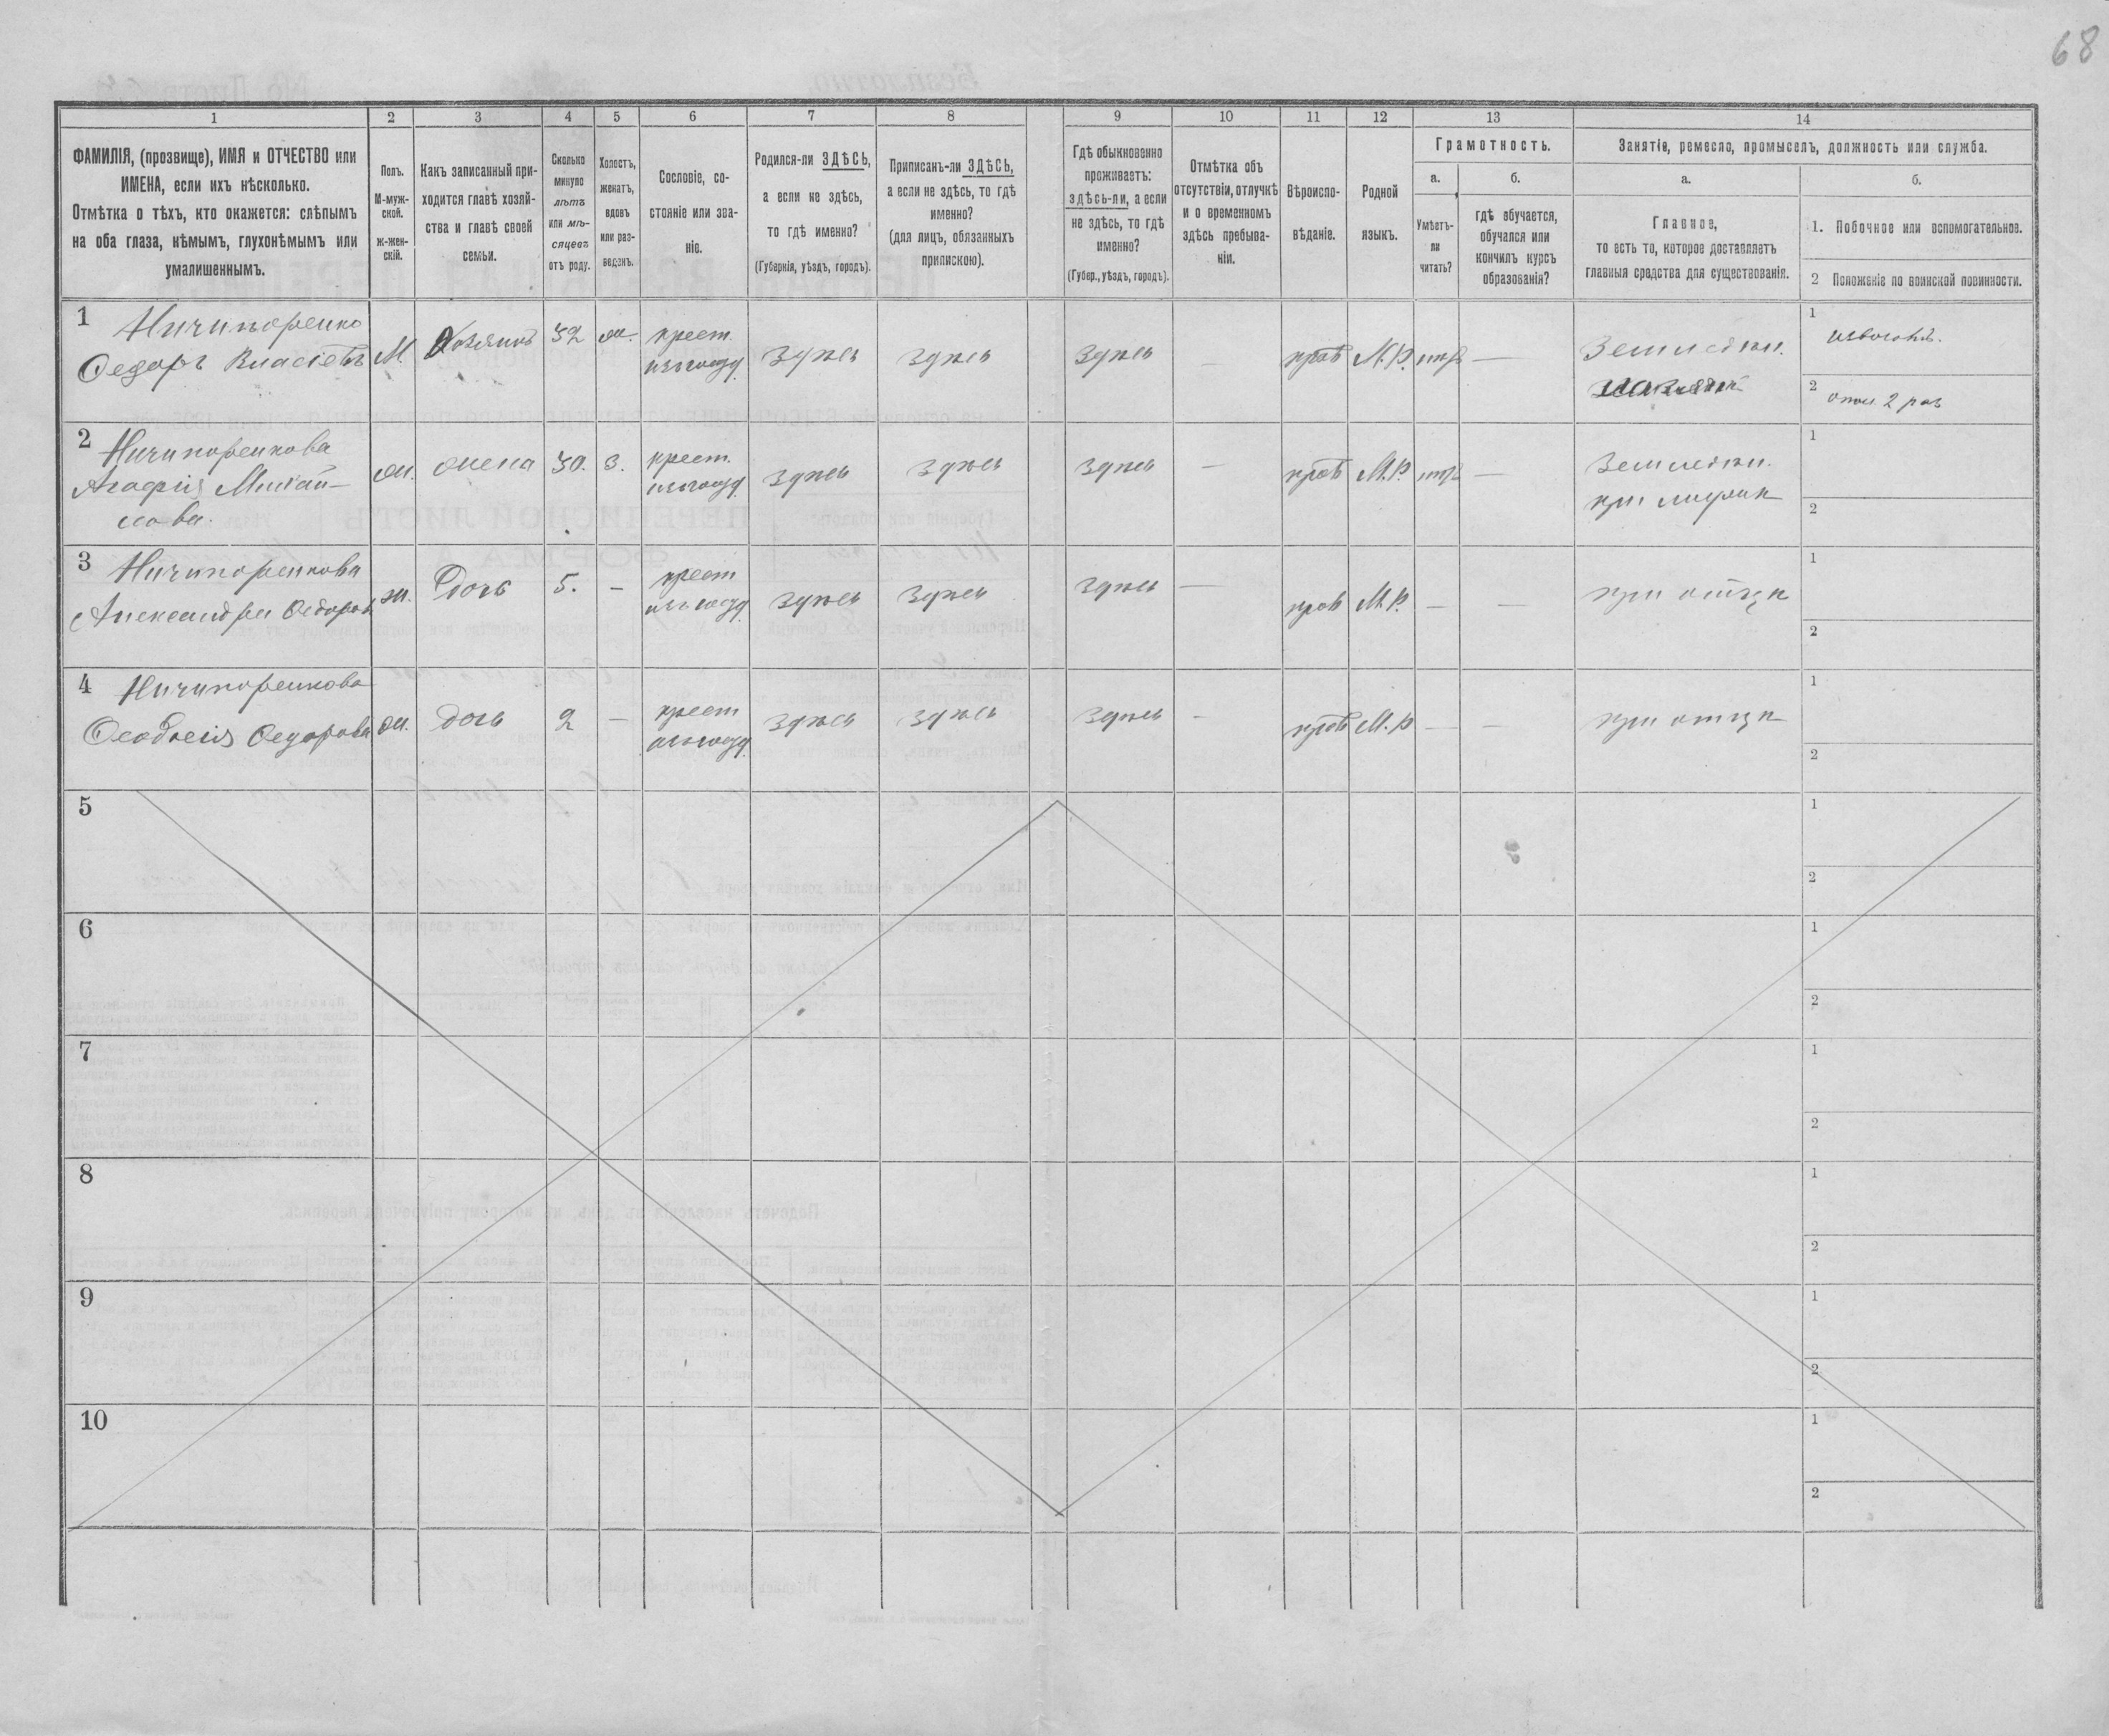 68
1 2 3 4 5 6 7 8 9 10 11 12 13 14
ФАМИЛІЯ, (прозвище), ИМЯ и ОТЧЕСТВО или
ИМЕНА, если ихъ нѣсколько.
Отмѣтка о тѣхъ, кто окажется: слѣпымъ
на оба глаза, нѣмымъ, глухонѣмымъ или
умалишеннымъ.
Полъ.
М-муж-
ской.
ж-жен-
скій.
Какъ записанный при-
ходится главѣ хозяй-
ства и главѣ своей
семьи.
Сколько
минуло
лѣтъ
или мѣ-
сяцевъ
отъ роду.
Холостъ,
женатъ,
вдовъ
или раз-
веденъ.
Сословіе, со-
стояніе или зва-
ніе.
Родился-ли ЗДѢСЬ,
а если не здѣсь,
то гдѣ именно?
(Губернія, уѣздъ, городъ).
Приписанъ-ли ЗДѢСЬ,
а если не здѣсь, то гдѣ
именно?
(для лицъ, обязанныхъ
припискою).
Гдѣ обыкновенно
проживаетъ:
здѣсь-ли, а если
не здѣсь, то гдѣ
именно?
(Губер., уѣздъ, городъ).
Отмѣтка объ
отсутствіи, отлучкѣ
и о временномъ
здѣсь пребыва-
ніи.
Вѣроиспо-
вѣданіе.
Родной
языкъ.
Грамотность.
а.
Умѣетъ-
ли
читать?
б.
гдѣ обучается,
обучался или
кончилъ курсъ
образованія?
Занятіе, ремесло, промыселъ, должность или служба.
а.
Главное,
то есть то, которое доставляетъ
главныя средства для существованія.
б.
1. Побочное или вспомогательное.
2 Положеніе по воинской повинности.
1 Ничипоренко
Ѳедоръ Власіевъ
М. Хозяинъ 32 ж. крест. здѣсь здѣсь здѣсь — прав М.Р. нѣтъ — Земледѣл.
1
2
2 Ничипоренкова
Агафія Михай-
лова.
ж. жена 30. З. крест. здѣсь здѣсь здѣсь — прав М.Р. нѣтъ — Земледѣл.
при мужѣ
1
2
3 Ничипоренкова
Александра Ѳедоров
ж. Дочь 5. — крест здѣсь здѣсь здѣсь — прав М.Р. — — при отцѣ
1
2
4 Ничипоренкова
Ѳеодосія Ѳедорова
ж. дочь 2 — крест здѣсь здѣсь здѣсь — прав М.Р — — при отцѣ
1
2
5 1
2
6 1
2
7 1
2
8 1
2
9 1
2
10 1
2